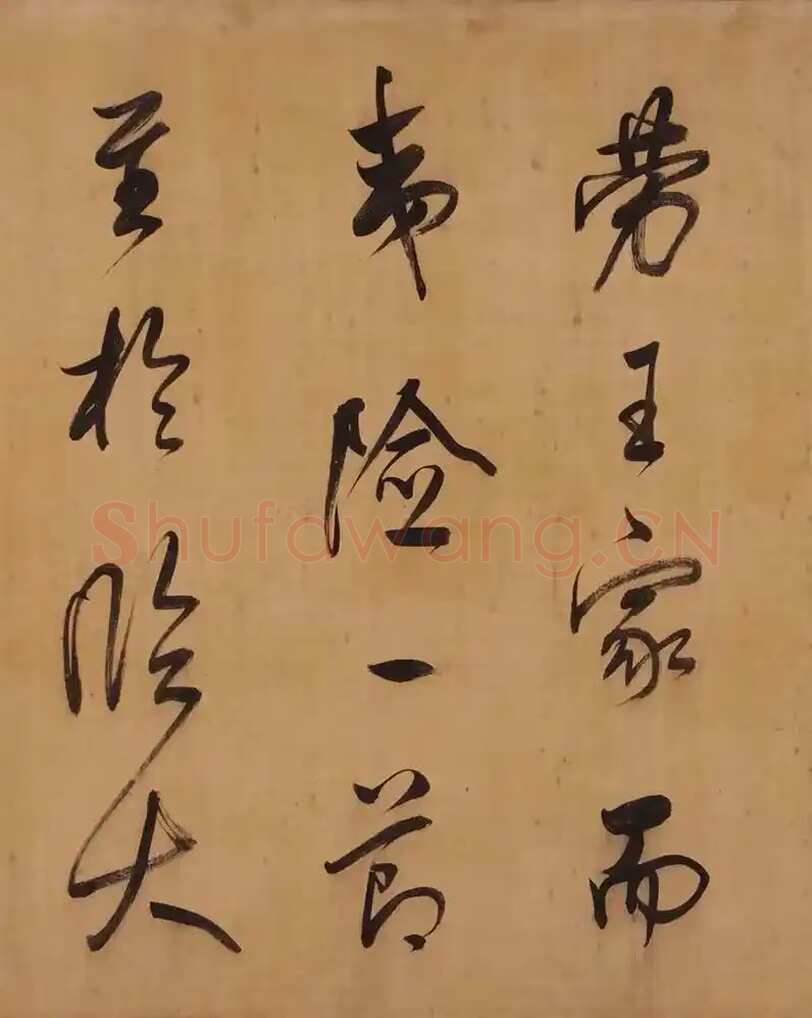 勞王家而
夷險一節
至於臨大
Shufawang.CN